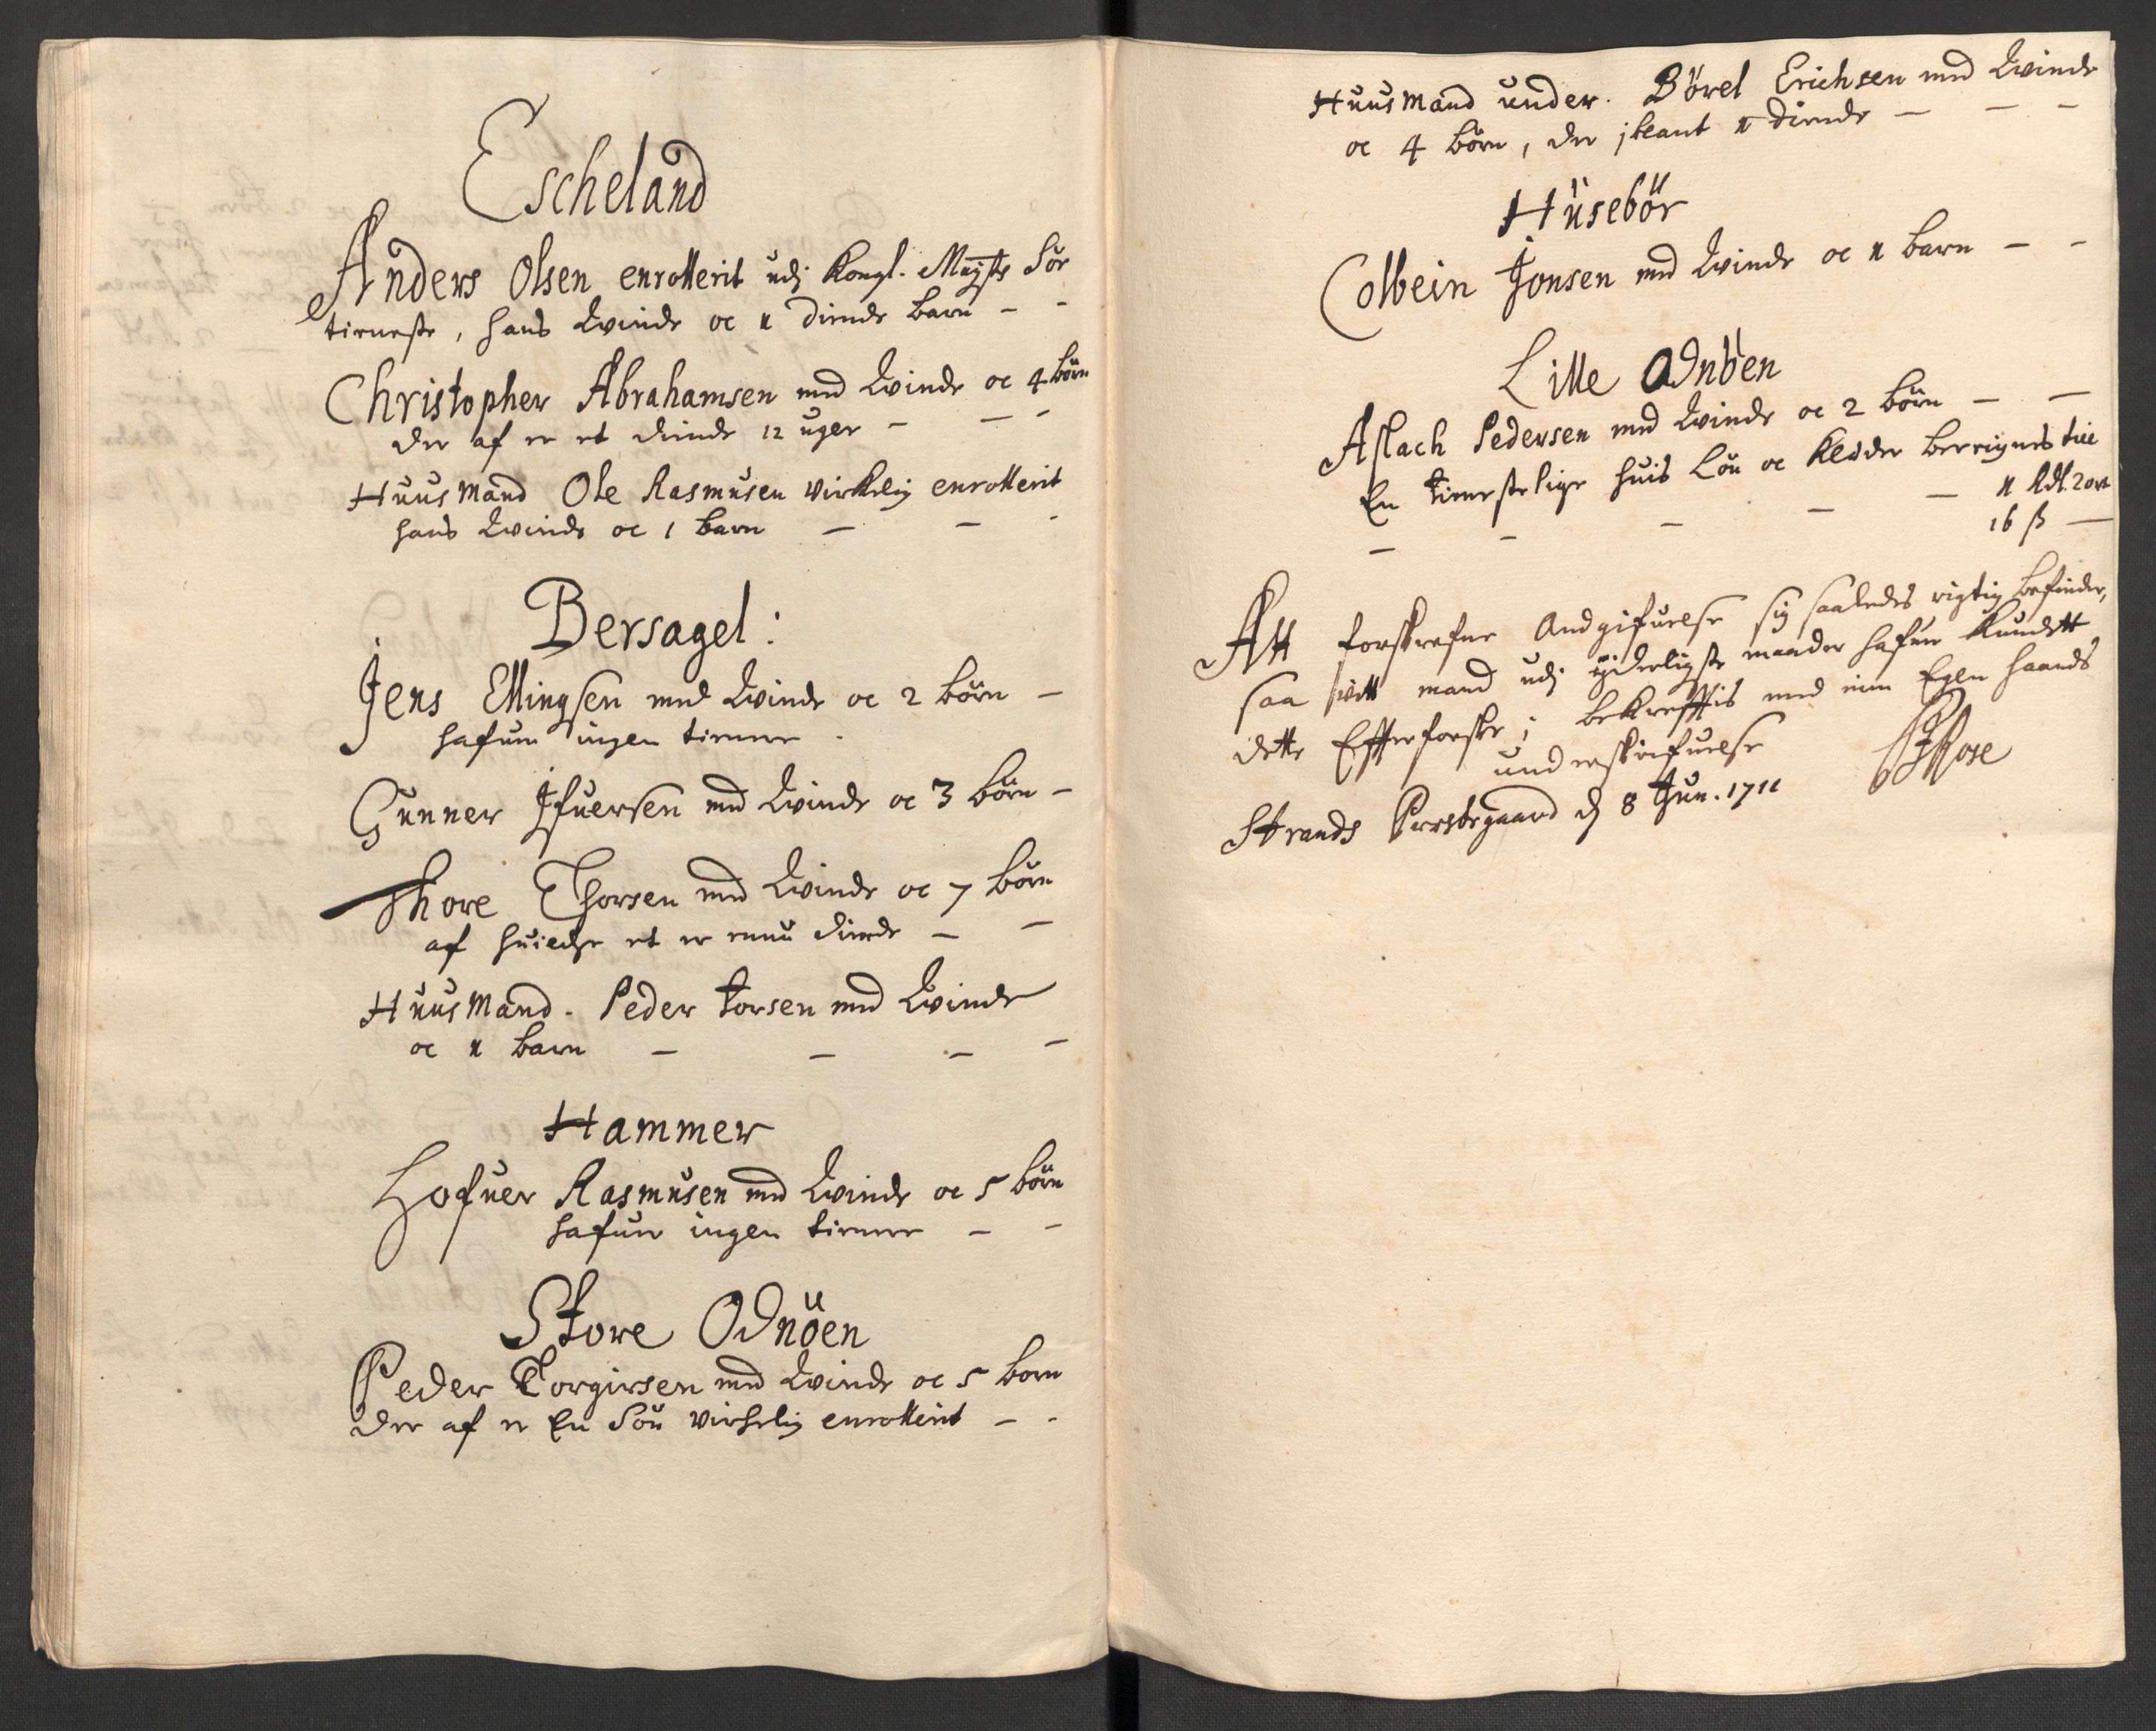 Escheland
Anders Olsen enrollerit udj Kongl. Maÿsts Sör
tienneste, hans Qvinde oc 1 diende barn - -
Christopher Abrahamsen med Qvinde oc 4 börn
der af er et diende 12 uger - - -
Huusmand Ole Rasmusen virkelig enrollerit
hans Qvinde oc 1 barn - - -
Bersagel:
Jens Ellingsen med Qvinde oc 2 börn -
hafuer ingen tienere -
Gunner Ifuersen med Qvinde oc 3 börn -
Thore Thorsen med Qvinde oc 7 börn
af huilche et er ennu diende - -
Huusmand. Peder Torsen med Qvinde
oc 1 barn - - - -
Hammer
Hofuer Rasmusen med Qvinde oc 5 börn
hafuer ingen tienere - -
Store Odnöen
Peder Torgirsen med Qvinde oc 5 born
der af er En Sön virkelig enrollerit - -
Huusmand under. Börel Erichsen med Qvinde
oc 4 börn, der iblant 1 diende - - -
Hüsebör
Colbein Jonsen med Qvinde oc 1 barn - -
Lille Odnöen
Aslach Pedersen med Qvinde oc 2 börn - -
En tieneste pige huis Lön oc Kleder beregnes till
- - - - - 1 Rdl. 2 ort
16 ß -
Att forskrefne Andgifuelse sig saaledes rigtig befinder,
saa vitt mand udj ÿderligste maader hafuer kundett
dette Efterforske; bekrefftis med min Egen haands
underskrifuelse
Strands Prestegaard d 8 Jun. 1711